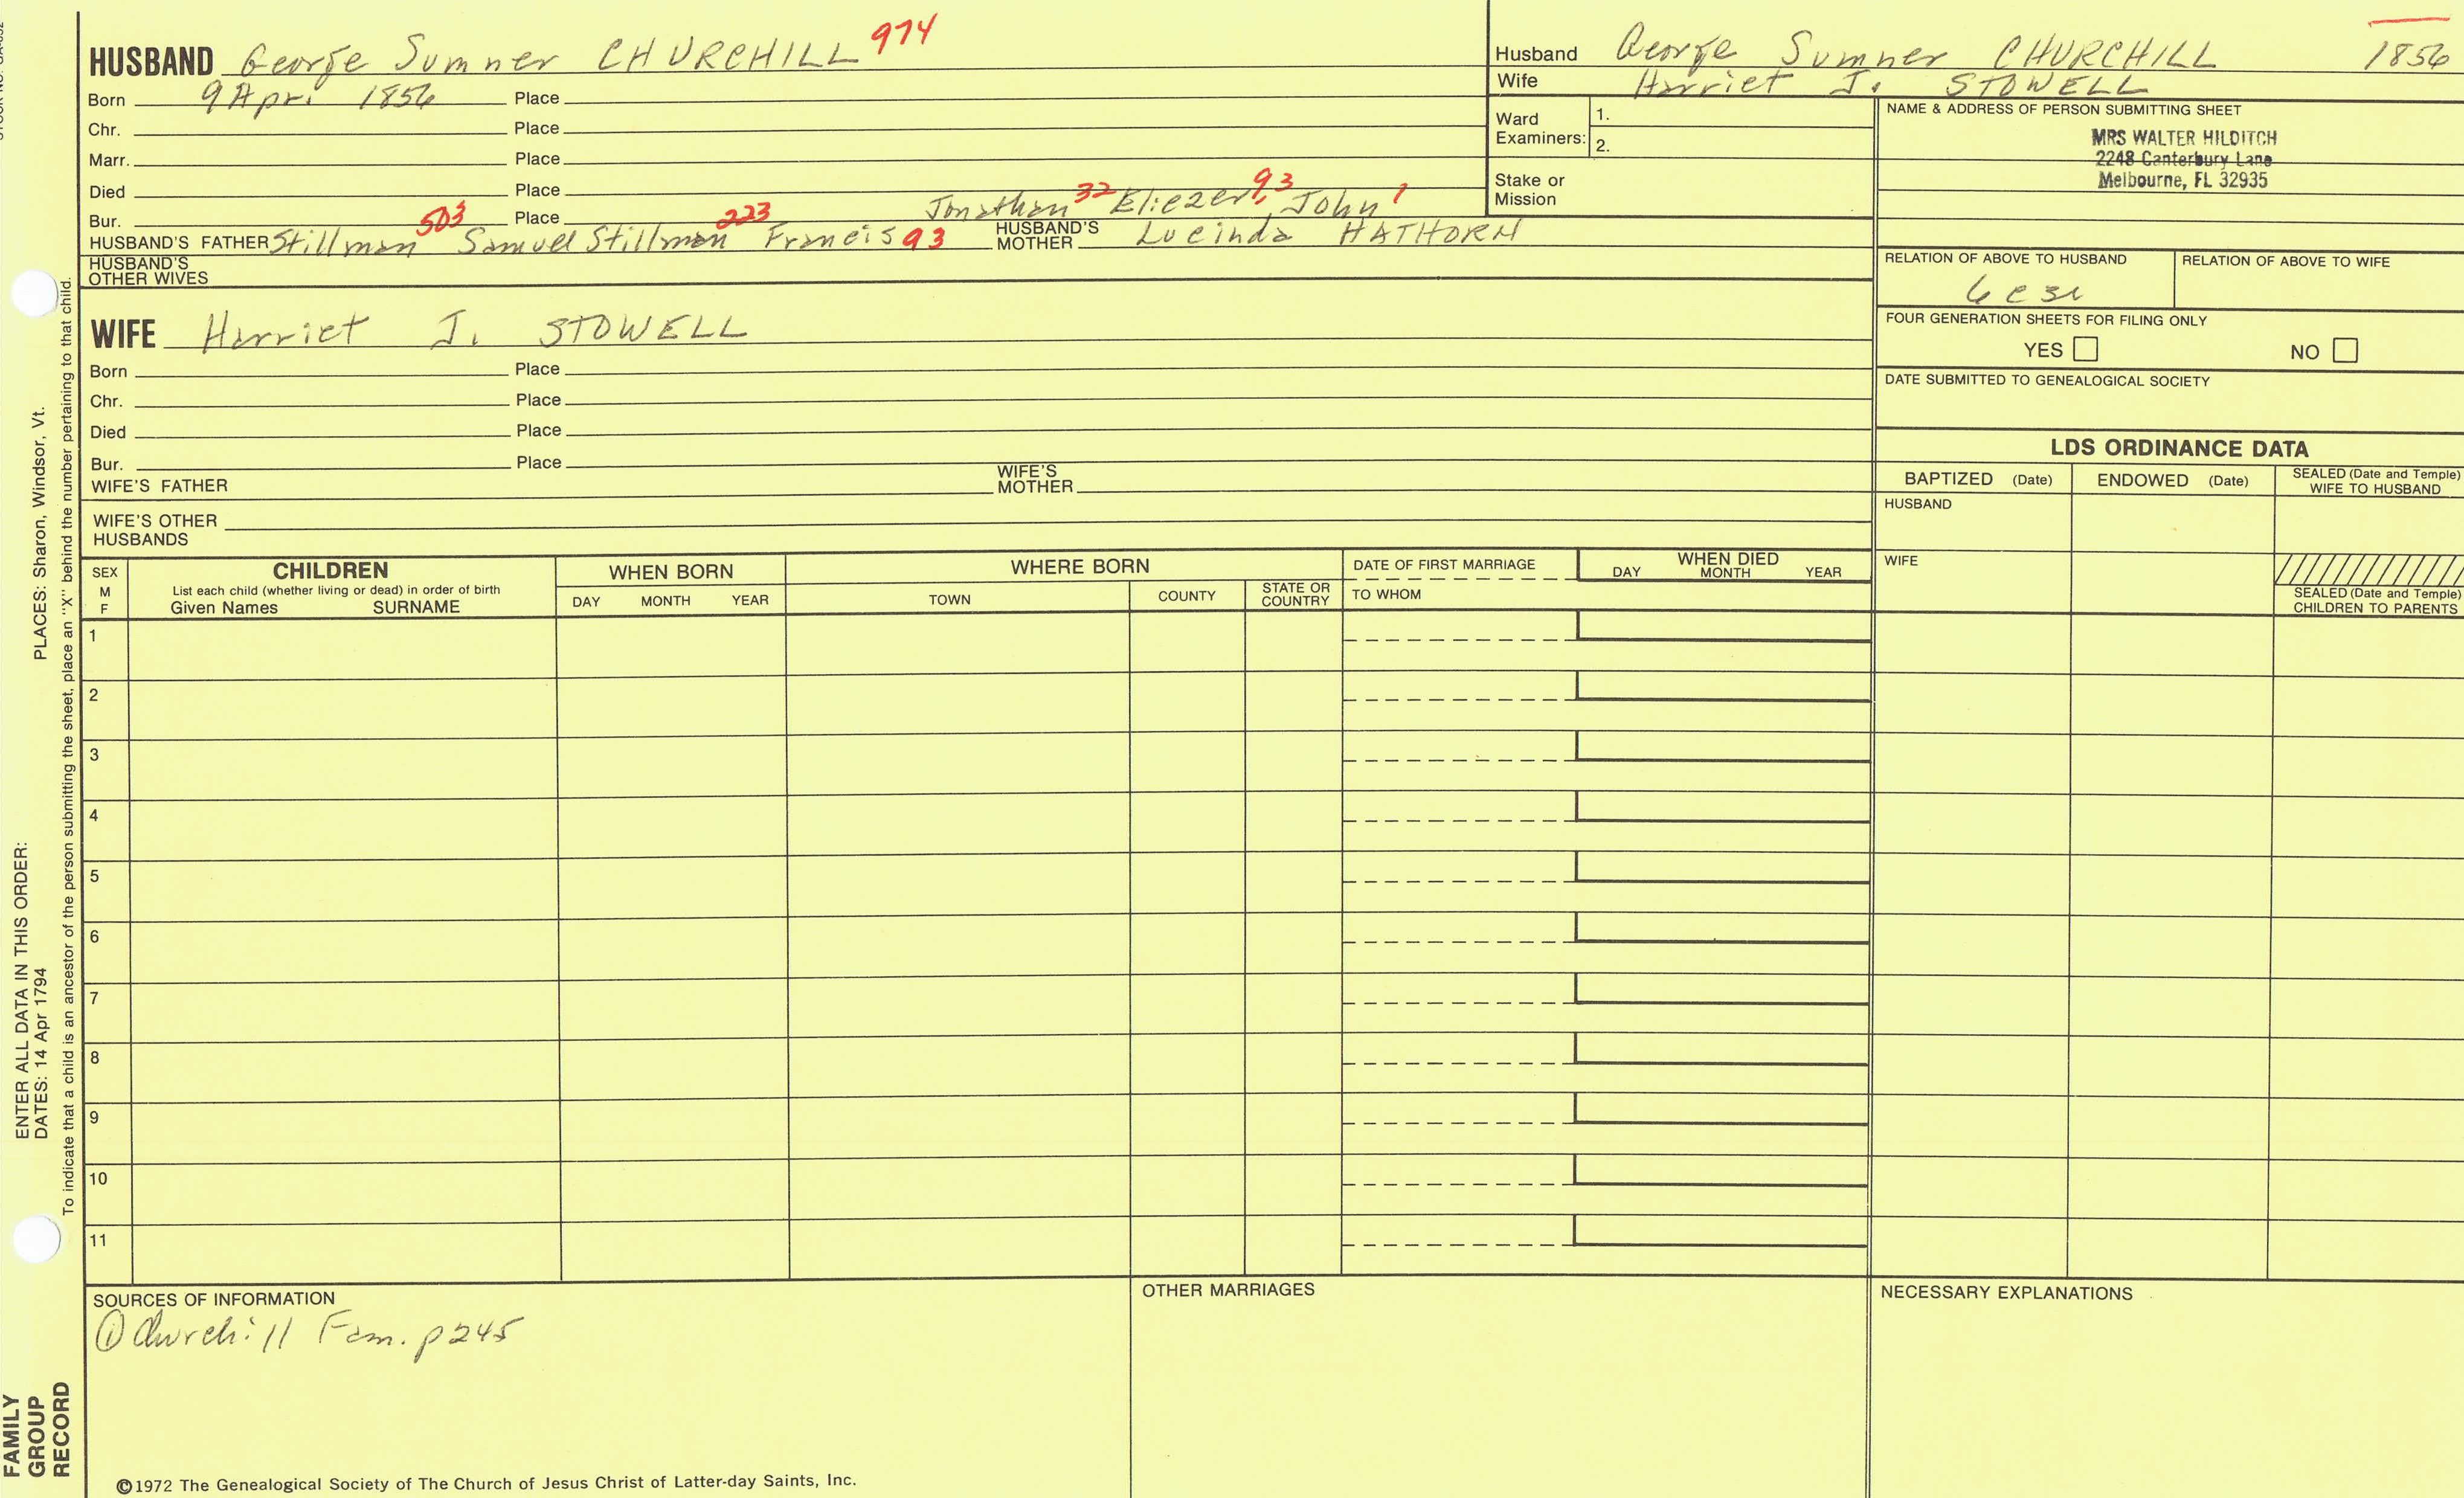 HUSBAND George Sumner CHURCHILL 974
Born 9 Apr. 1856 Place
Chr. Place
Marr. Place
Died Place
Bur. Place Jonathan 32 Eliezer, 93 John 1
HUSBAND'S FATHER Stillman 503 Samuel Stillman 223 Francis 93 HUSBAND'S MOTHER Lucinda HATHORN
HUSBAND'S OTHER WIVES
Husband George Sumner CHURCHILL 1856
Wife Harriet J. STOWELL
Ward Examiners: 1.
2.
Stake or Mission
NAME & ADDRESS OF PERSON SUBMITTING SHEET
MRS WALTER HILDITCH
2248 Canterbury Lane
Melbourne, FL 32935
RELATION OF ABOVE TO HUSBAND RELATION OF ABOVE TO WIFE
FOUR GENERATION SHEETS FOR FILING ONLY
YES NO
DATE SUBMITTED TO GENEALOGICAL SOCIETY
WIFE Harriet J. STOWELL
Born Place
Chr. Place
Died Place
Bur. Place
WIFE'S FATHER WIFE'S MOTHER
WIFE'S OTHER HUSBANDS
LDS ORDINANCE DATA
BAPTIZED (Date) ENDOWED (Date) SEALED (Date and Temple) WIFE TO HUSBAND
HUSBAND
WIFE
SEALED (Date and Temple) CHILDREN TO PARENTS
SEX M F
CHILDREN
List each child (whether living or dead) in order of birth
Given Names SURNAME
WHEN BORN
DAY MONTH YEAR
WHERE BORN
TOWN COUNTY STATE OR COUNTRY
DATE OF FIRST MARRIAGE
TO WHOM
WHEN DIED
DAY MONTH YEAR
1
2
3
4
5
6
7
8
9
10
11
SOURCES OF INFORMATION
① Churchill Fam. p 245
OTHER MARRIAGES
NECESSARY EXPLANATIONS
©1972 The Genealogical Society of The Church of Jesus Christ of Latter-day Saints, Inc.
FAMILY GROUP RECORD
ENTER ALL DATA IN THIS ORDER:
DATES: 14 Apr 1794 PLACES: Sharon, Windsor, Vt.
To indicate that a child is an ancestor of the person submitting the sheet, place an "X" behind the number pertaining to that child.